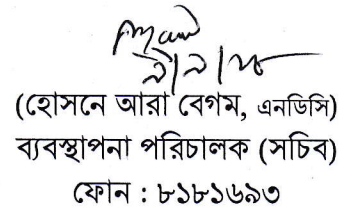 (হোসনে আরা বেগম, এনডিসি)
ব্যবস্থাপনা পরিচালক (সচিব)
ফোন : ৮১৮১৬৯৩